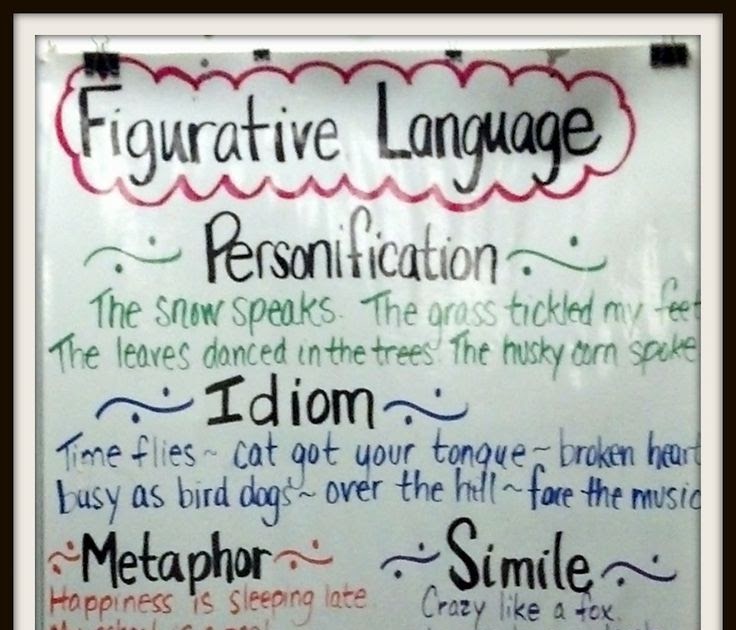 Figurative Language
Personification
The snow speaks. The grass tickled my feet
The leaves danced in the trees. The husky corn spoke
Idiom
Time flies~ cat got your tongue~ broken heart
busy as bird dogs~ over the hill~ face the music
Metaphor
Simile
Happiness is sleeping late
Crazy like a fox.